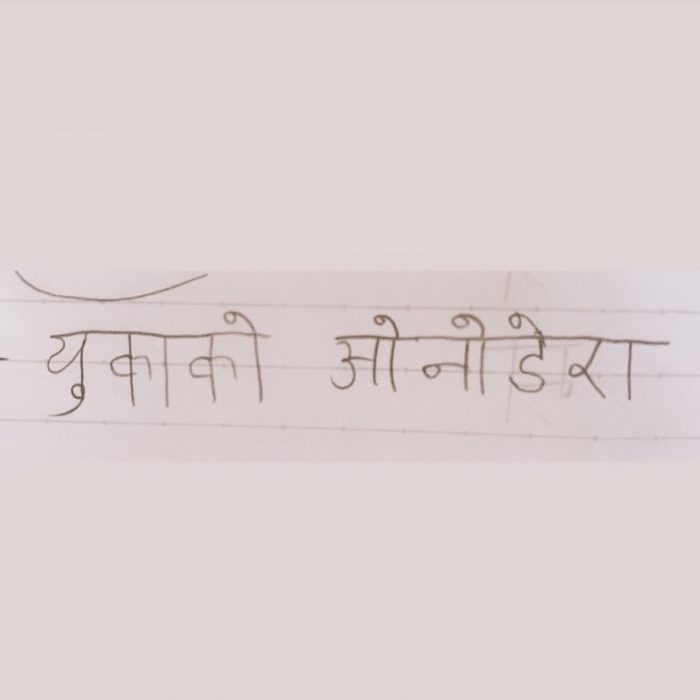 युकाको ओनोडेरा